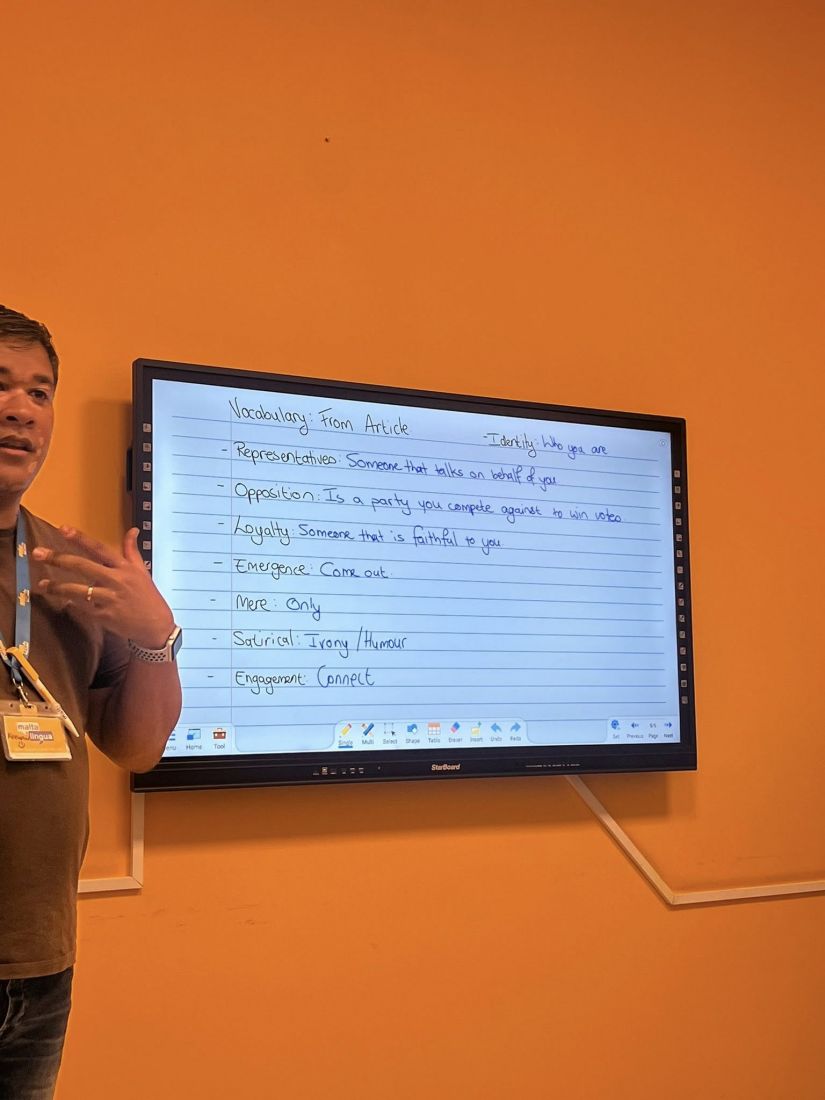 Vocabulary: From Article
- Identity: Who you are
- Representatives: Someone that talks on behalf of you
- Opposition: Is a party you compete against to win votes
- Loyalty: Someone that is faithful to you
- Emergence: Come out.
- Mere: Only
- Satirical: Irony / Humour
- Engagement: Connect
Home Tool Single Multi Select Shape Table Eraser Insert Undo Redo Previous Page Next
StarBoard
malta
lingua